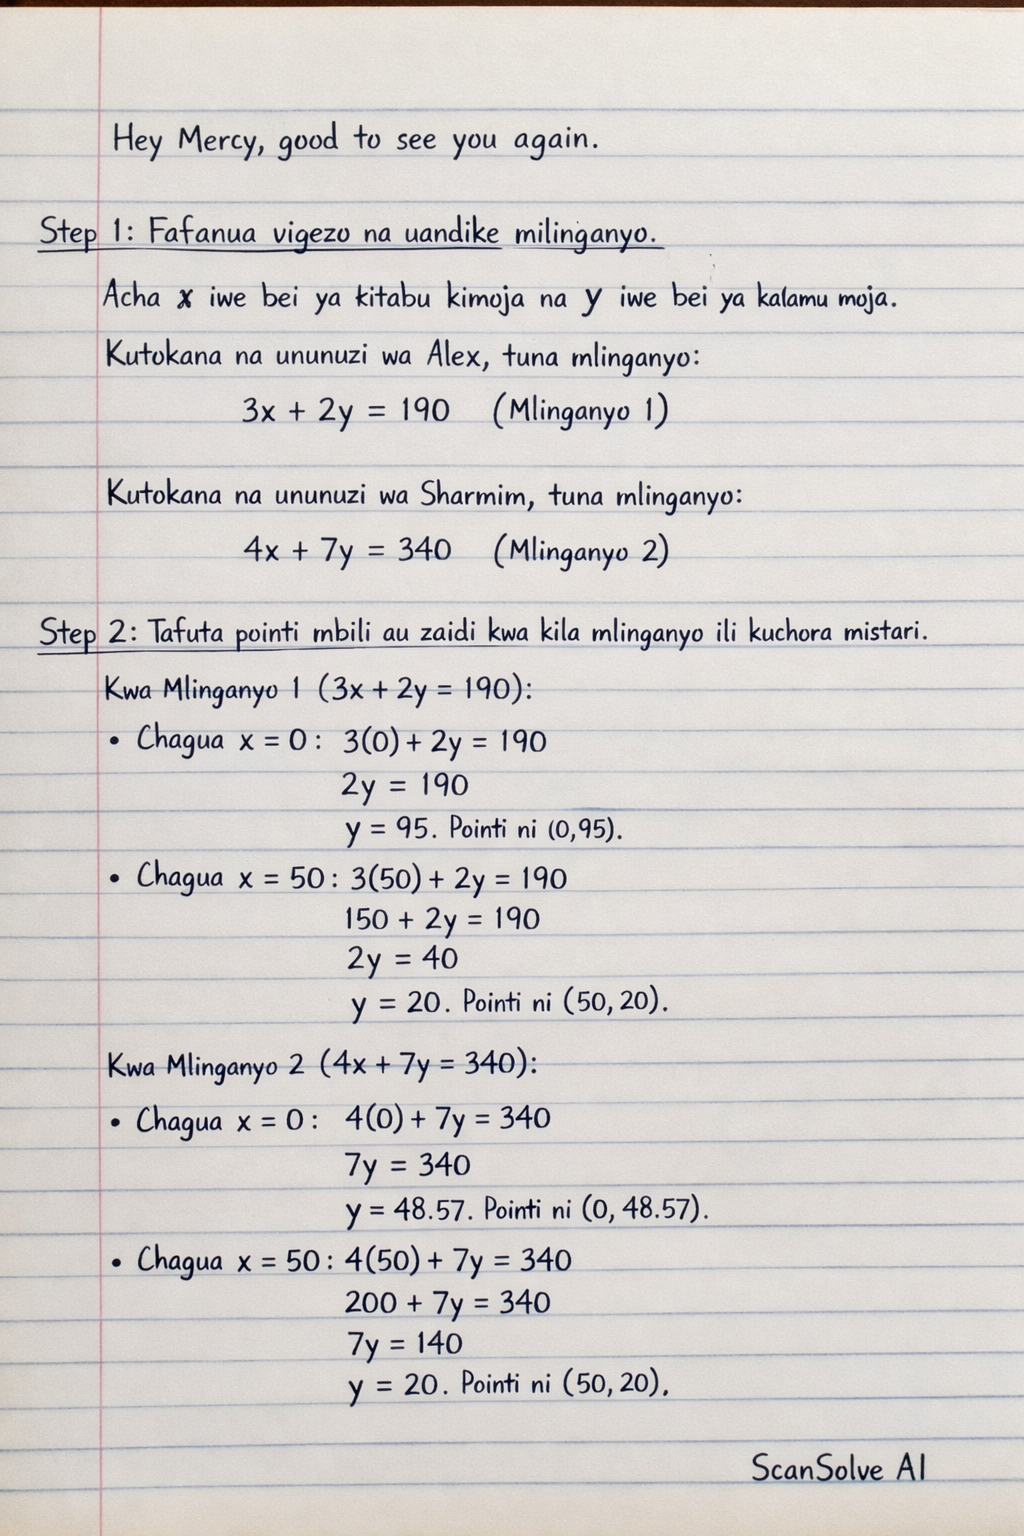 Hey Mercy, good to see you again.
Step 1: Fafanua vigezo na uandike milinganyo.
Acha x iwe bei ya kitabu kimoja na y iwe bei ya kalamu moja.
Kutokana na ununuzi wa Alex, tuna mlinganyo:
3x + 2y = 190 (Mlinganyo 1)
Kutokana na ununuzi wa Sharmim, tuna mlinganyo:
4x + 7y = 340 (Mlinganyo 2)
Step 2: Tafuta pointi mbili au zaidi kwa kila mlinganyo ili kuchora mistari.
Kwa Mlinganyo 1 (3x + 2y = 190):
• Chagua x = 0: 3(0) + 2y = 190
2y = 190
y = 95. Pointi ni (0,95).
• Chagua x = 50: 3(50) + 2y = 190
150 + 2y = 190
2y = 40
y = 20. Pointi ni (50, 20).
Kwa Mlinganyo 2 (4x + 7y = 340):
• Chagua x = 0: 4(0) + 7y = 340
7y = 340
y = 48.57. Pointi ni (0, 48.57).
• Chagua x = 50: 4(50) + 7y = 340
200 + 7y = 340
7y = 140
y = 20. Pointi ni (50, 20).
ScanSolve AI